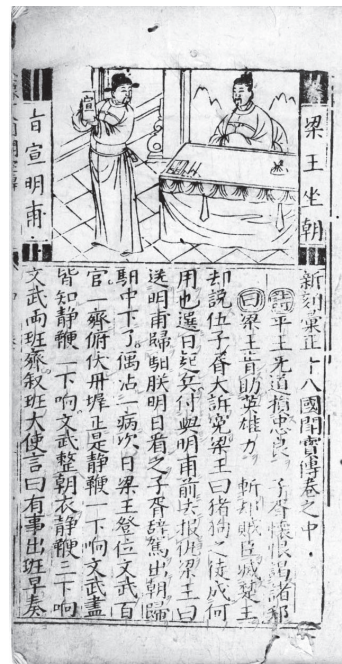 梁王坐朝
旨宣明甫
宣
新刻彙正十八國鬪寶傳卷之中
詩平王无道損忠良 子胥懷恨过諸邦
曰梁王肯助英雄力 斬却賊臣滅楚王
却說伍子胥大訴冤梁王曰猪狗之徒成何
用也選日起兵付與明甫前去报佷梁王曰
送明甫歸馹朕明日看之子胥辞駕出朝歸
馹中下了偶沾一病次日梁王登位文武百
官一齊俯伏丹墀正是静鞭一下响文武盡
皆知静鞭二下响文武整朝衣静鞭三下响
文武兩班齊叙班大使言曰有事出班早奏